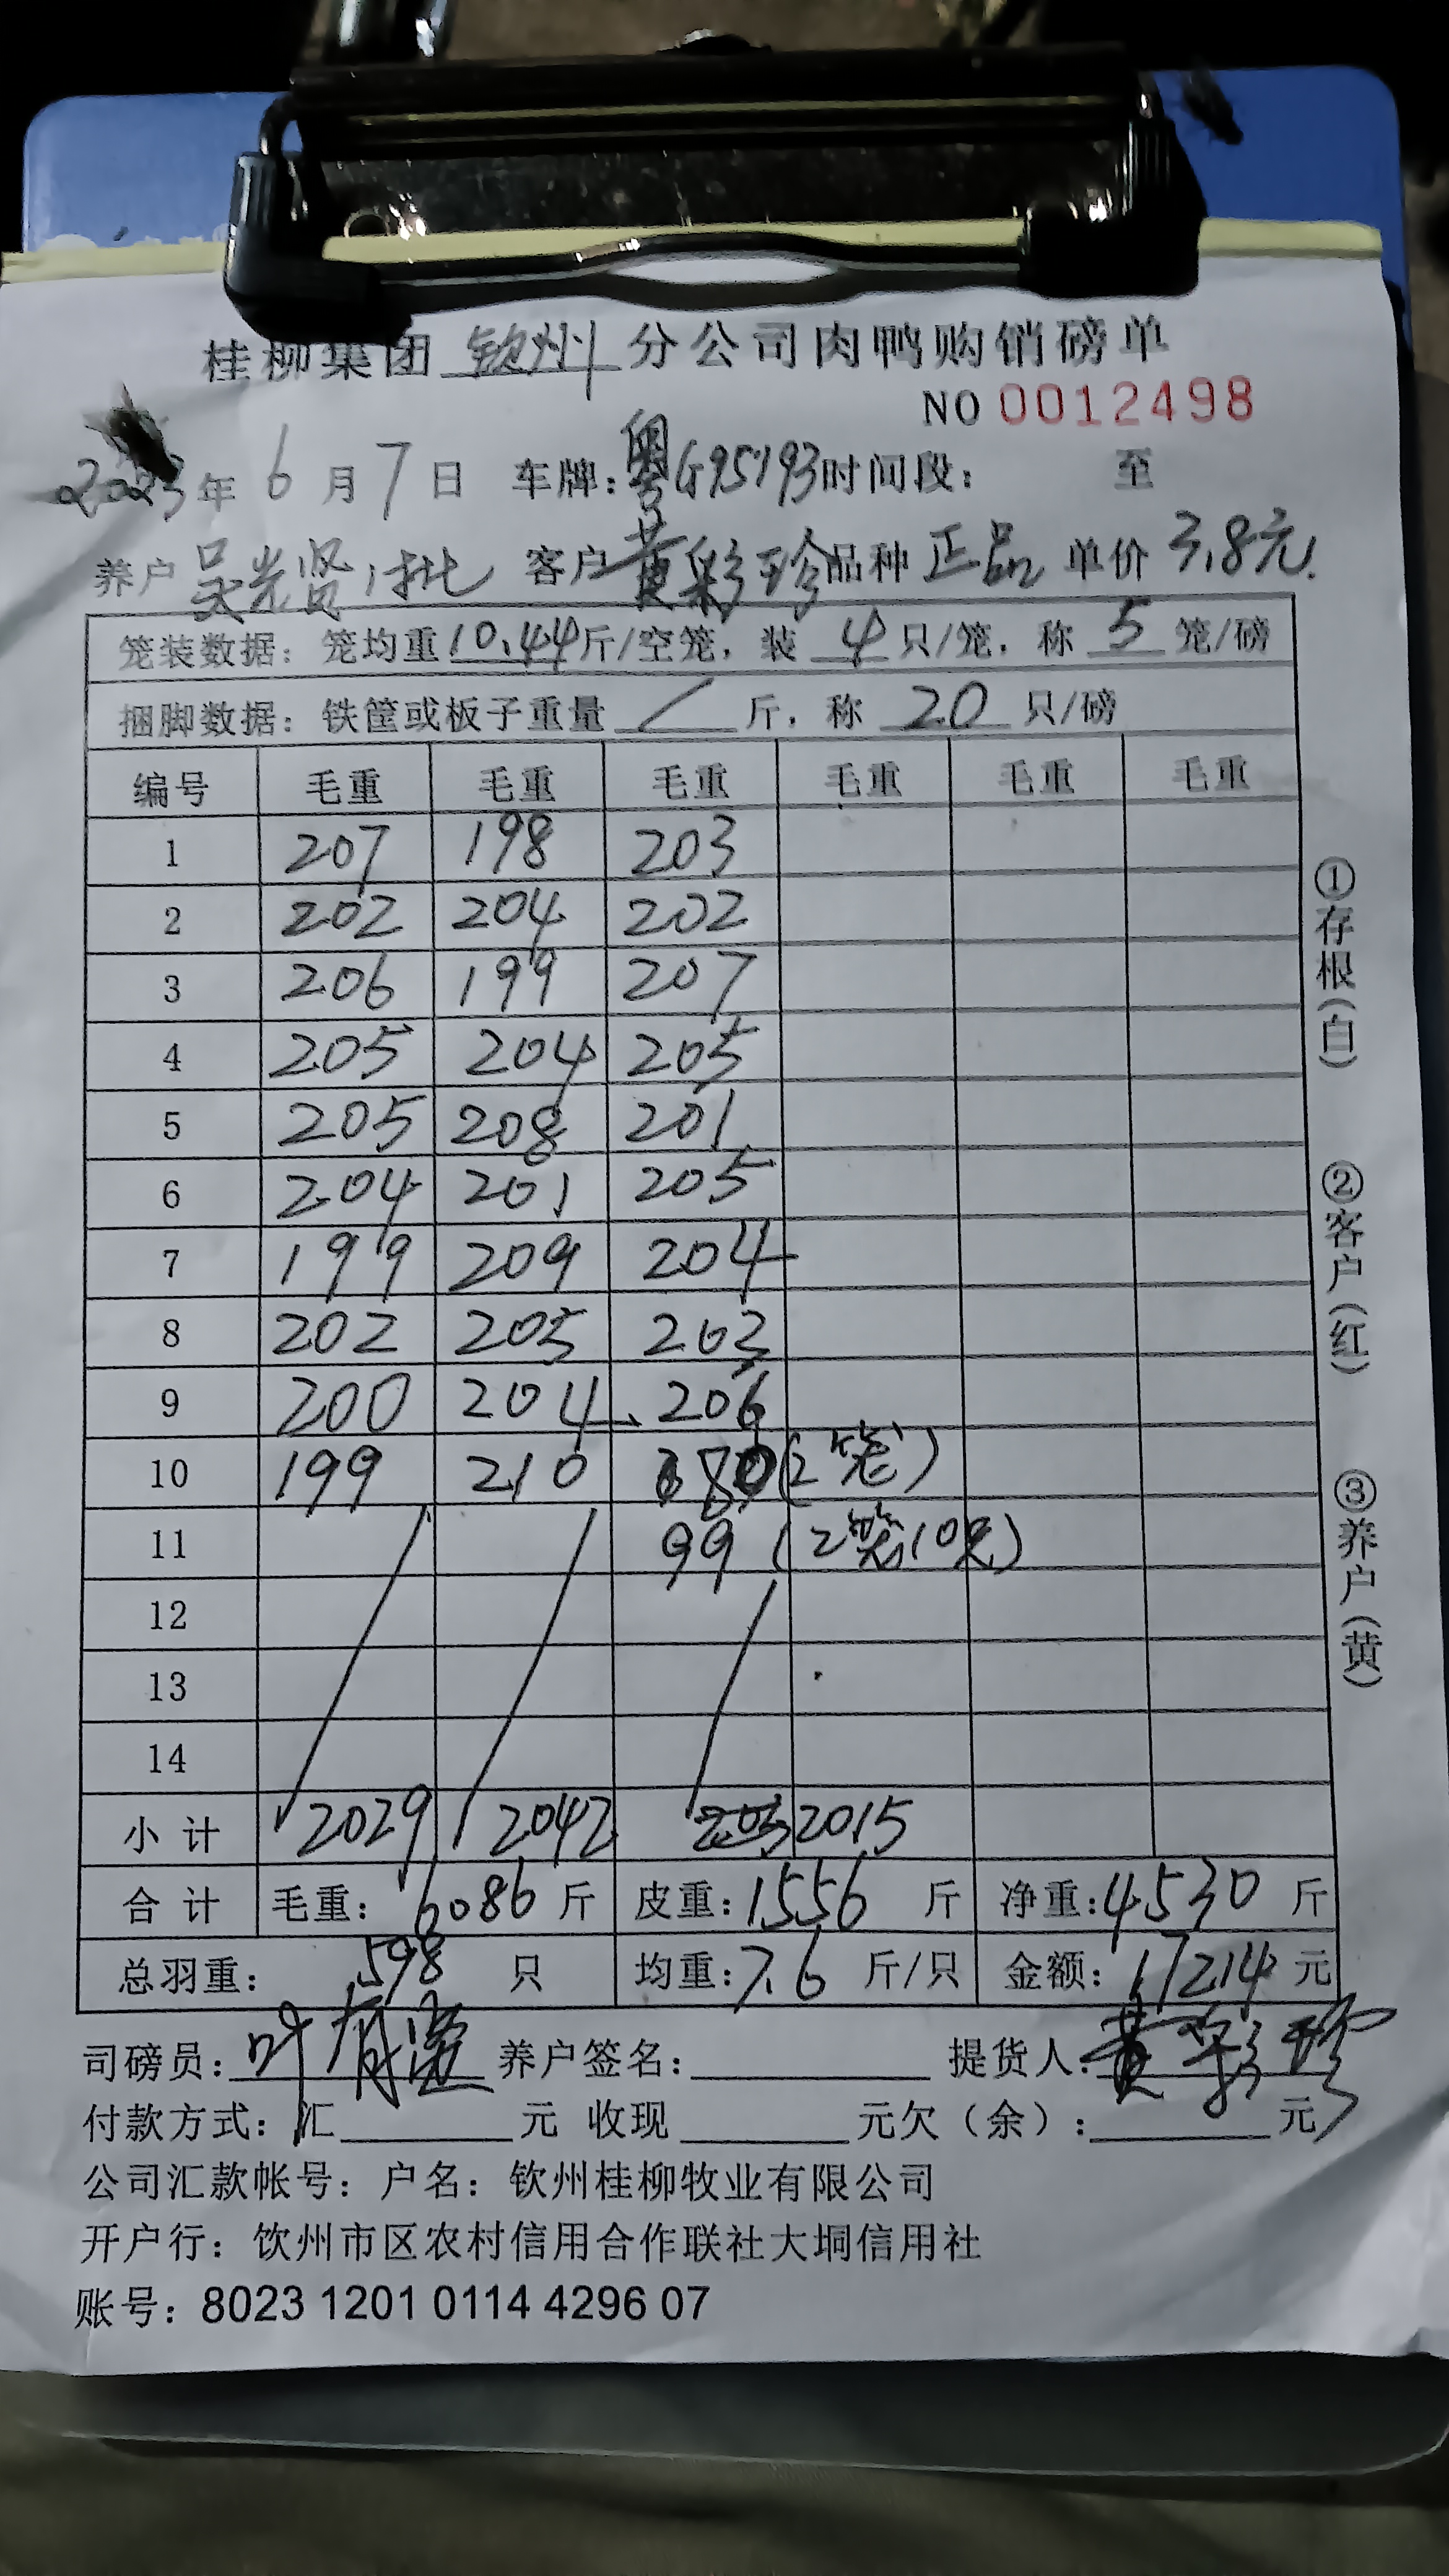 桂柳集团 钦州 分公司肉鸭购销磅单
NO 0012498
2023年 6月 7日 车牌:粤G95193时间段: 至
养户 吴光贤1批 客户 黄彩珍 品种 正品 单价 3.8元.
笼装数据: 笼均重10.44斤/空笼, 装 4 只/笼, 称 5 笼/磅
捆脚数据: 铁筐或板子重量 / 斤, 称 20 只/磅
编号 毛重 毛重 毛重 毛重 毛重 毛重
1 207 198 203
2 202 204 202
3 206 199 207
4 205 204 205
5 205 208 201
6 204 201 205
7 199 209 204
8 202 205 203
9 200 204 206
10 199 210 80(2笼)
11 99(2笼10只)
12
13
14
小计 2029 2042 2015
合计 毛重: 6086 斤 皮重:1556 斤 净重:4530 斤
总羽重: 598 只 均重:7.6 斤/只 金额: 17214 元
司磅员: 叶 养户签名: 提货人:黄彩珍
付款方式: 汇 元 收现 元欠(余): 元
公司汇款帐号: 户名: 钦州桂柳牧业有限公司
开户行: 饮州市区农村信用合作联社大垌信用社
账号: 8023 1201 0114 4296 07
①存根(白) ②客户(红) ③养户(黄)